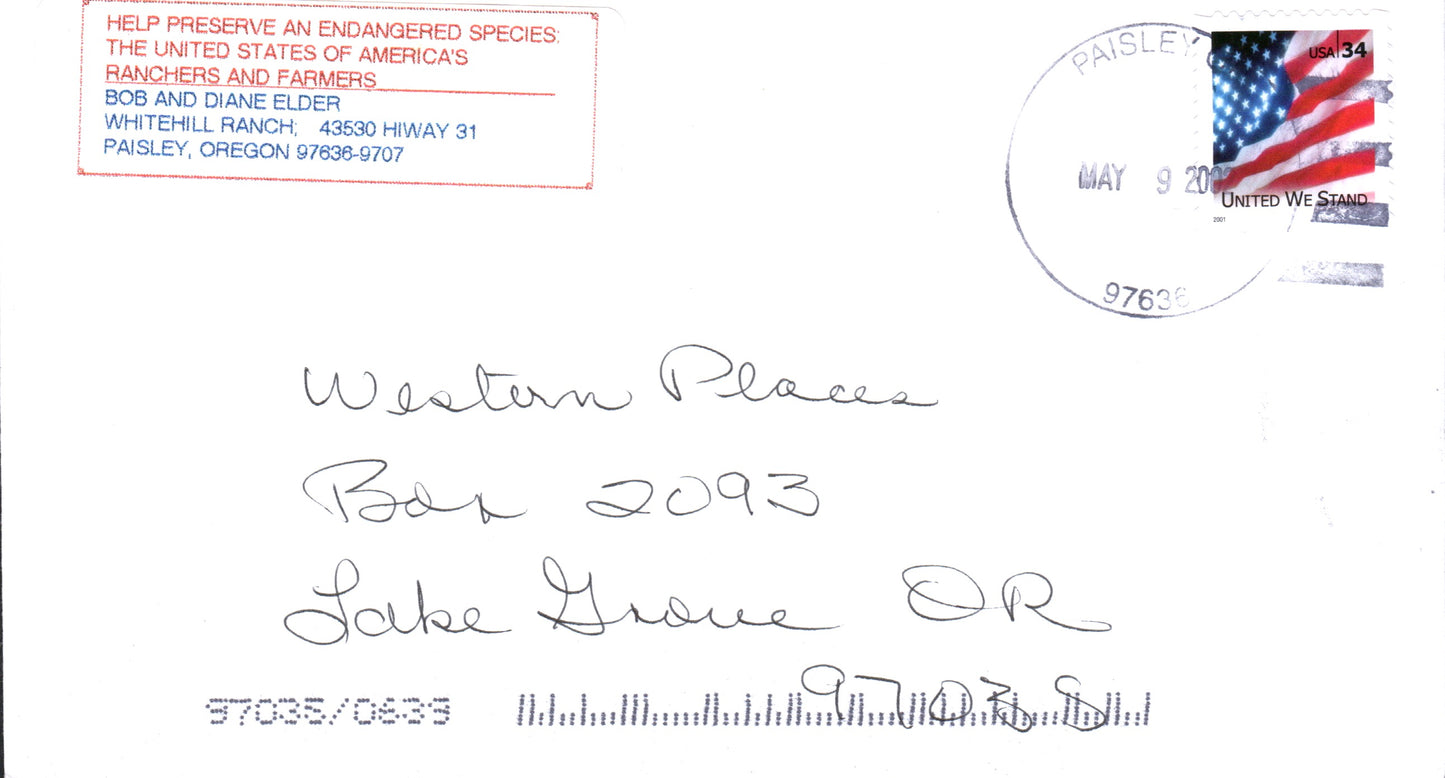 HELP PRESERVE AN ENDANGERED SPECIES:
THE UNITED STATES OF AMERICA'S
RANCHERS AND FARMERS
BOB AND DIANE ELDER
WHITEHILL RANCH; 43530 HIWAY 31
PAISLEY, OREGON 97636-9707
PAISLEY
MAY 9 200
97636
USA 34
UNITED WE STAND
2001
Western Places
Box 2093
Lake Grove OR
97035
97035/0639